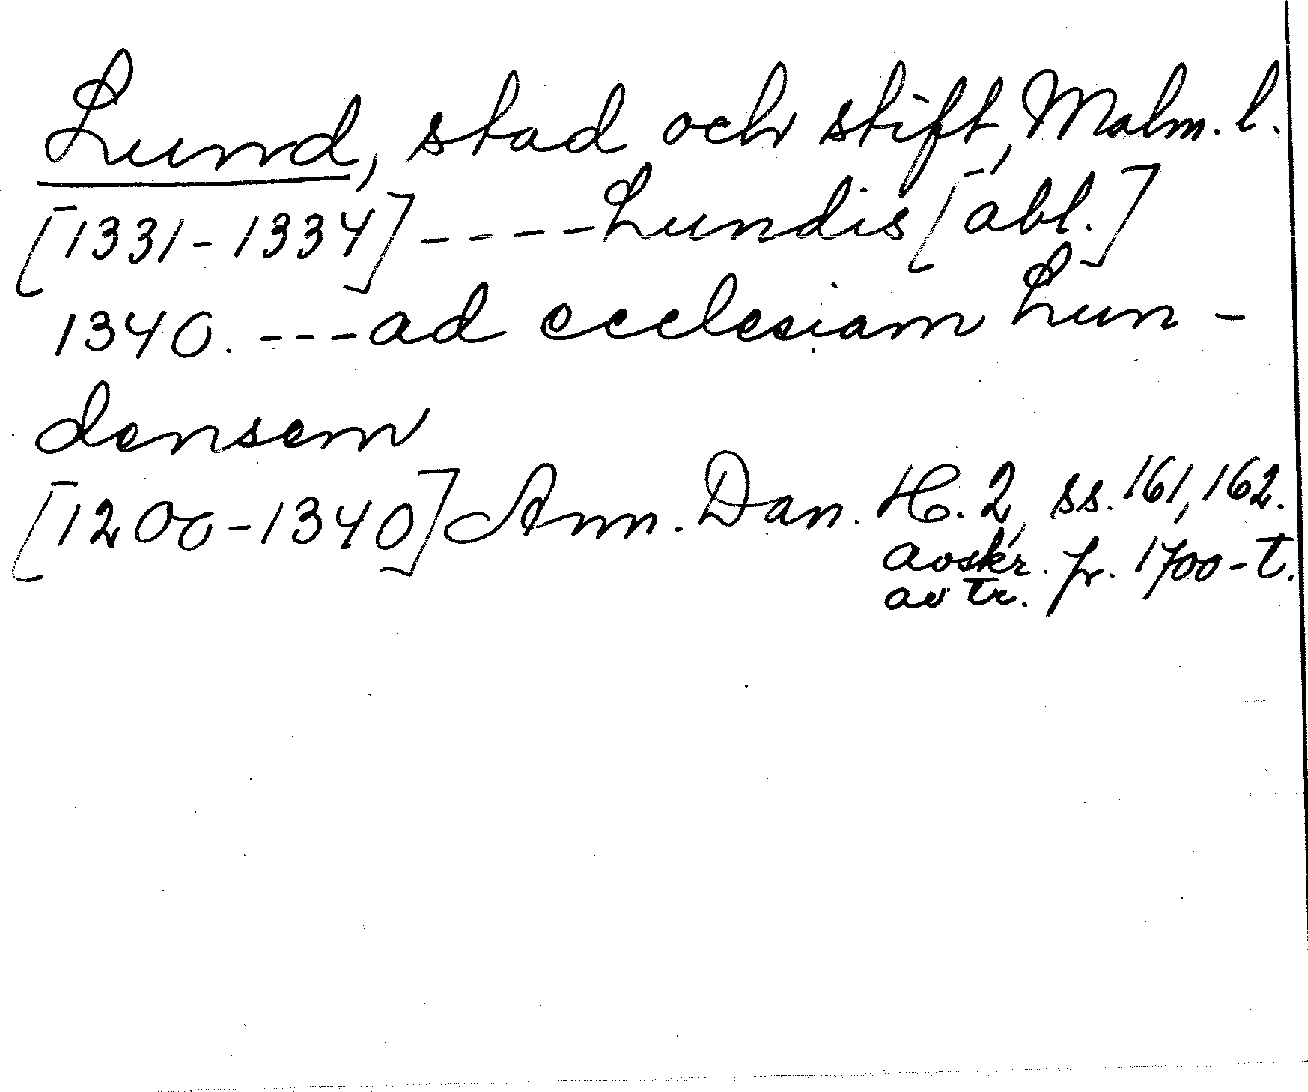 Lund, stad och stift, Malm. l.
[1331-1334] ---- Lundis [abl.]
1340. --- ad ecclesiam Lun-
densem
[1200-1340] Ann. Dan. H. 2, ss. 161, 162.
avskr. fr. 1700-t.
av tr.